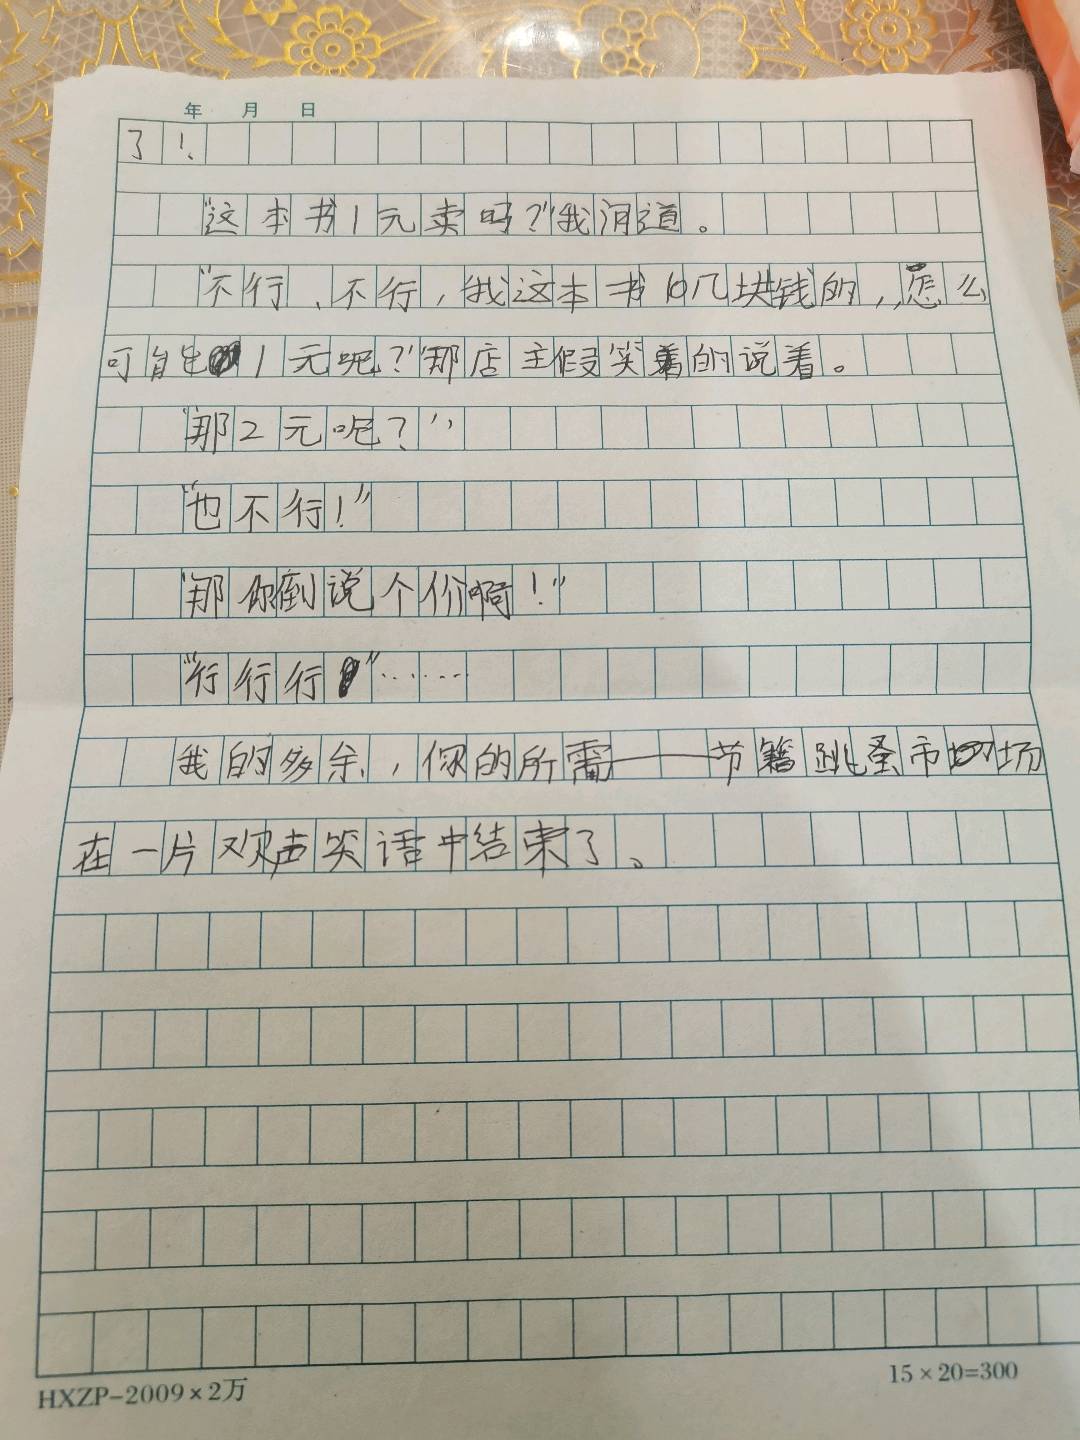 年 月 日
了!、
"这本书1元卖吗?"我问道。
"不行、不行,我这本书10几块钱的,,怎么
可能1元呢?"那店主假笑着的说着。
"那2元呢?"
"也不行!"
"那你倒说个价啊!"
"行行行"……
我的多余,你的所需——节籍跳蚤市场
在一片欢声笑话中结束了。
HXZP-2009×2万
15×20=300